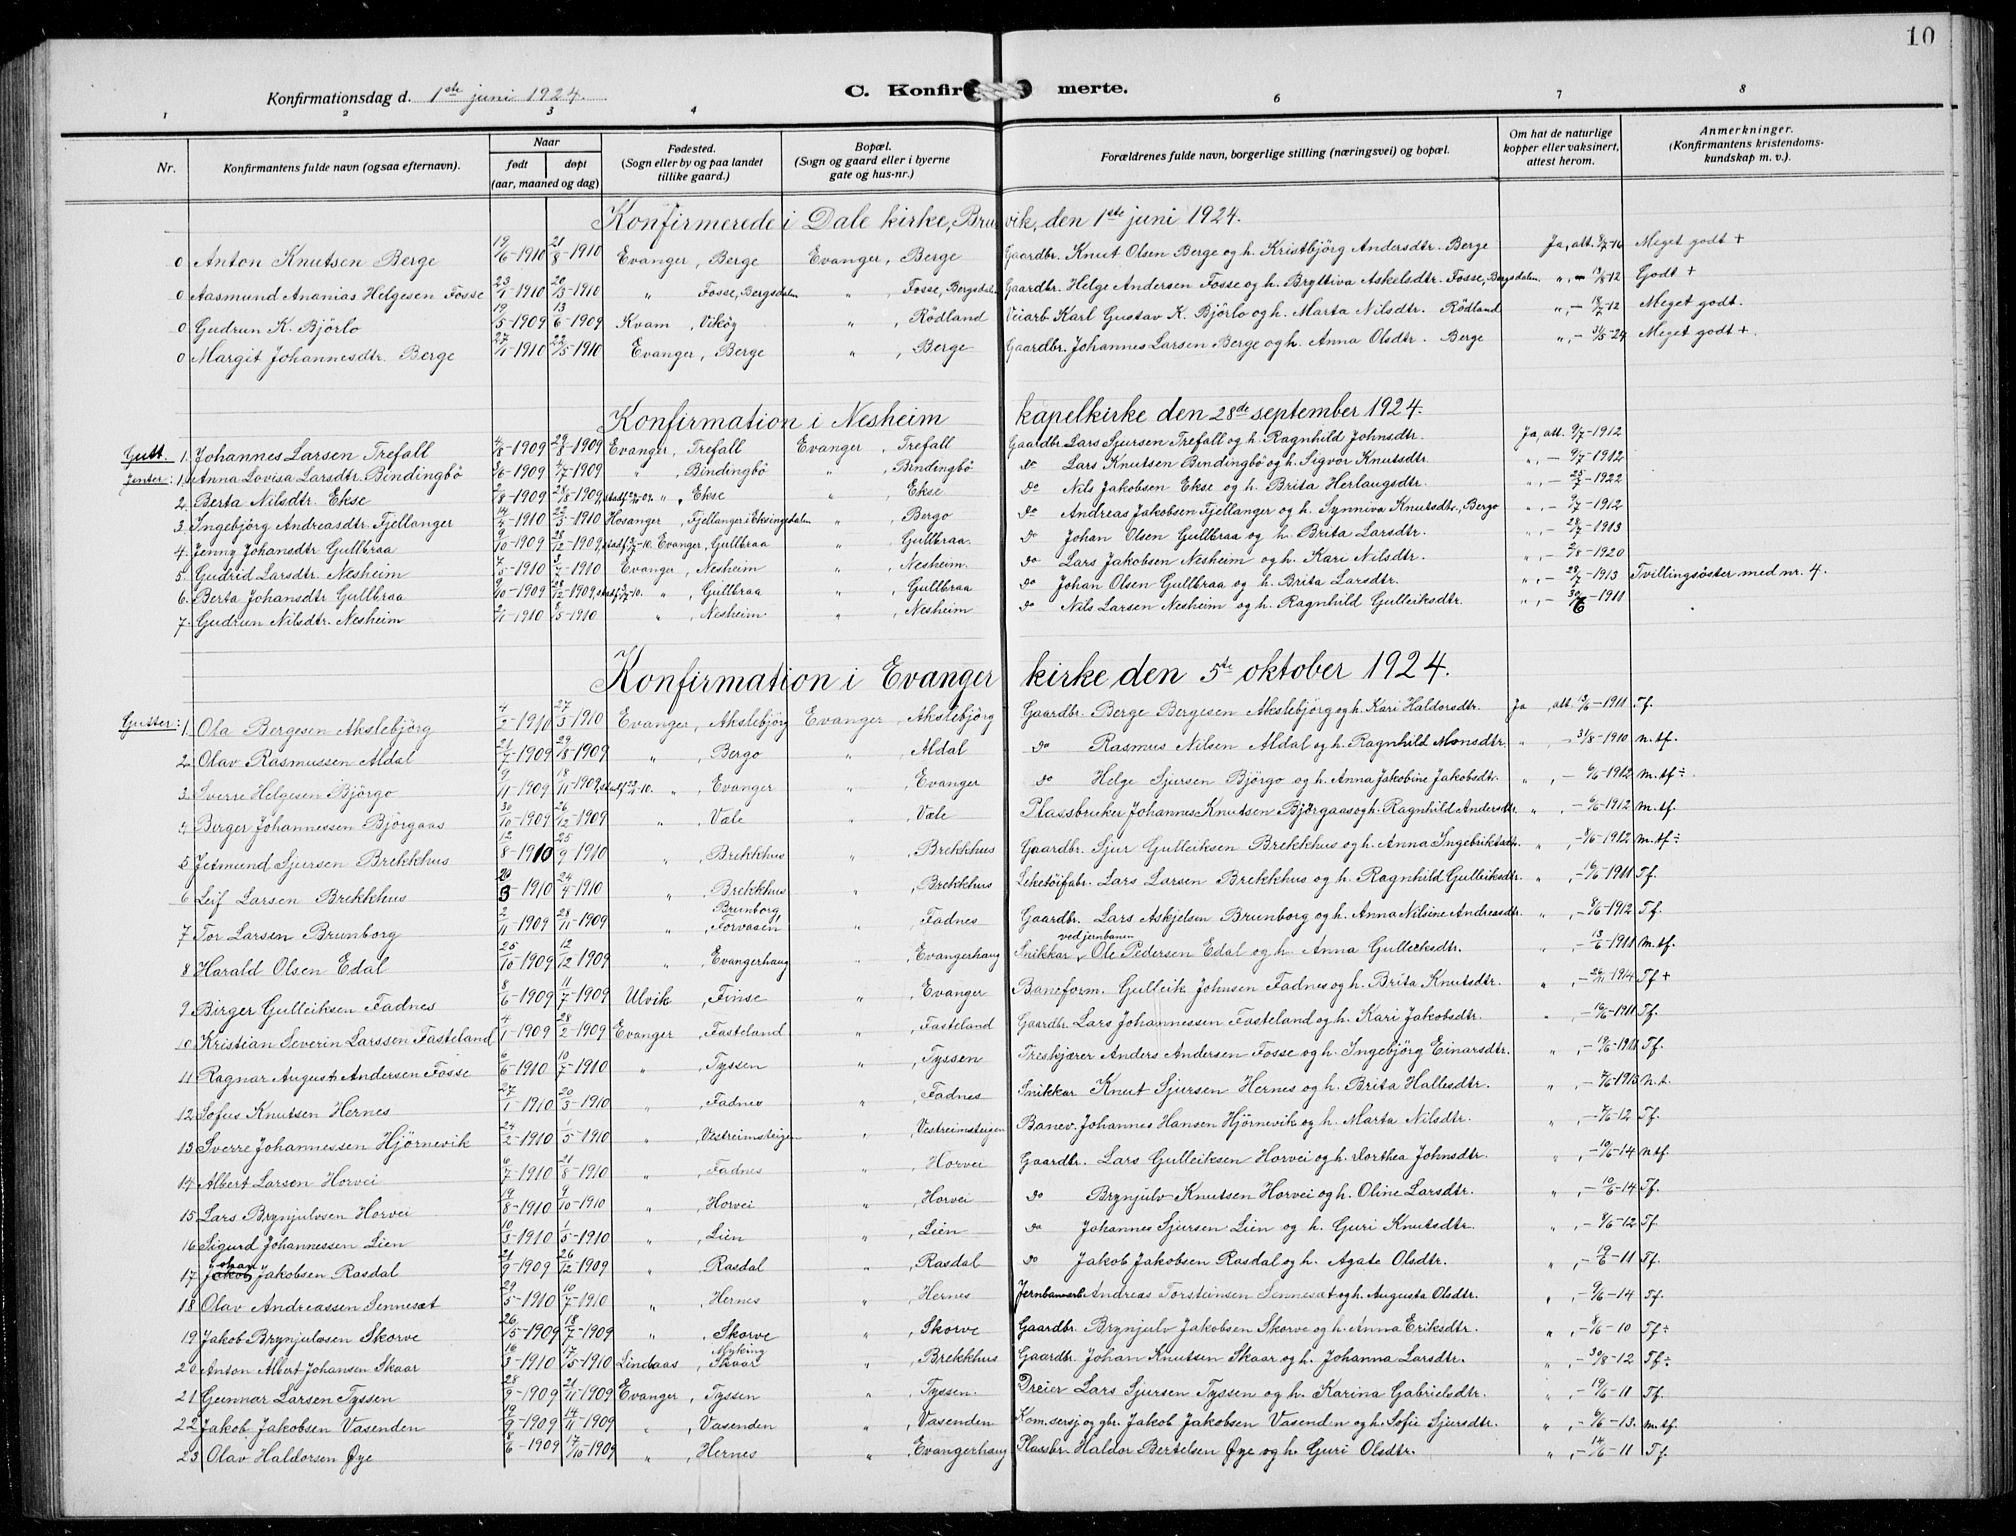 10
Konfirmationsdag d. 1ste juni 1924. C. Konfirmerte.
1 2 3 4 6 7 8
Nr. Konfirmantens fulde navn (ogsaa efternavn). Naar født døpt (aar, maaned og dag) Fødested. (Sogn eller by og paa landet tillike gaard.) Bopæl. (Sogn og gaard eller i byerne gate og hus-nr.) Forældrenes fulde navn, borgerlige stilling (næringsvei) og bopæl. Om hat de naturlige kopper eller vaksinert, attest herom. Anmerkninger. (Konfirmantens kristendomskundskap m. v.).
Konfirmerede i Dale kirke, Bruvik, den 1ste juni 1924.
0 Anton Knutsen Berge 19/6-1910 21/8-1910 Evanger, Berge Evanger, Berge Gaardbr. Knut Olsen Berge og h. Kristbjörg Andersdtr. Berge Ja, att. 8/7-16 Meget godt +
0 Aasmund Ananias Helgesen Fosse 23/1-1910 20/3-1910 " Fosse, Bergsdalen " , Fosse, Bergsdalen Gaardbr. Helge Andersen Fosse og h. Bryttiva Askelsdtr. Fosse, Bergsdalen " , - 13/8-12 Godt +
0 Gudrun K. Björlo 19/5-1909 13/6-1909 Kvam, Viköy " , Rödland Veiarb Karl Gustav K. Björlo og h. Marta Nilsdtr. Rödland " , - 18/7-12 Meget godt.
0 Margit Johannesdtr. Berge 27/1-1910 22/5-1910 Evanger, Berge " , Berge Gaardbr. Johannes Larsen Berge og h. Anna Olsdtr. Berge " , - 31/5-24 Meget godt +.
Konfirmation i Nesheim kapelkirke den 28de september 1924.
Gutt. 1. Johannes Larsen Trefall 4/8-1909 29/8-1909 Evanger, Trefall Evanger, Trefall Gaardbr. Lars Sjursen Trefall og h. Ragnhild Johnsdtr. Ja, att. 9/7-1912
Jenter: 1. Anna Lovisa Larsdtr. Bindingbö 3/6-1909 4/7-1909 " , Bindingbö " , Bindingbö do Lars Knutsen Bindingbö og h. Sigvor Knutsdtr. " , - 9/7-1912
2. Berta Nilsdtr. Ekse 2/8-1909 28/8-1909, " , Ekse " , Ekse do Nils Jakobsen Ekse og h. Brita Herlaugsdtr. " , - 25/7-1922
3. Ingebjörg Andreasdtr. Fjellanger 14/4-1910 22/5-1910 Hosanger, Fjellanger i Eksingedalen " , Bergo do Andreas Jakobsen Fjellanger og h. Synniva Knutsdtr., Bergo " , - 9/7-1912
4. Jenny Johansdtr. Gullbraa 9/10-1909 28/12-1909, Evanger, Gullbraa " , Gullbraa. do Johan Olsen Gullbraa og h. Brita Larsdtr. " , - 28/7-1913
5. Gudrid Larsdtr. Nesheim 7/5-1910 3/7-1910 Evanger, Nesheim " , Nesheim. do Lars Jakobsen Nesheim og h. Kari Nilsdtr. " , - 2/8-1920
6. Berta Johansdtr Gullbraa 9/10-1909 28/12-1909, " , Gullbraa " , Gullbraa do Johan Olsen Gullbraa og h. Brita Larsdtr. " , - 28/7-1913 Tvillingsöster med nr. 4.
7. Gudrun Nilsdtr. Nesheim 2/1-1910 8/5-1910 " , Nesheim " , Nesheim do Nils Larsen Nesheim og h. Ragnhild Gulleiksdtr. " , - 30/6-1911
Konfirmation i Evanger kirke den 5te oktober 1924.
Gutter: 1. Ola Bergesen Akslebjörg 4/2-1910 27/3-1910 Evanger, Akslebjörg Evanger, Akslebjörg Gaardbr. Berge Bergesen Akslebjörg og h. Kari Haldorsdtr. Ja , att. 13/6-1911 Tf.
2. Olav Rasmussen Aldal 21/7-1909 29/8-1909 " , Bergo " , Aldal do Rasmus Nilsen Aldal og h. Ragnhild Monsdtr. " , - 31/8-1910 n.tf.
3. Sverre Helgesen Björgo 9/11-1909 18/11-1909, " , Evanger " , Evanger do Helge Sjursen Björgo og h. Anna Jakobine Jakobsdtr. " , - 6/6-1912 m.tf÷
4. Birger Johannessen Björgaas 30/10-1909 26/12-1909 " , Væle " , Væle Plassbruker Johannes Knutsen Björgaas og h. Ragnhild Andersdtr. " , - 6/6-1912 m.tf.
5 Jetmund Sjursen Brekkhus 12/8-1910 25/9-1910 " , Brekkhus " , Brekkhus Gaardbr. Sjur Gulleiksen Brekkhus og h. Anna Ingebriktsdtr. " , - 8/6-1912 m.tf÷
6 Leif Larsen Brekkhus 20/3-1910 24/4-1910 " , Brekkhus " , Brekkhus Leketöifabr. Lars Larsen Brekkhus og h. Ragnhild Gulleiksdtr. " , - 16/6-1911 Tf.
7 Tor Larsen Brunborg 2/11-1909 28/11-1909 " , Brunborg, Forvasen " , Fadnes Gaardbr. Lars Askjelsen Brunborg og h. Anna Nilsine Andreasdtr. " , - 8/6-1912 Tf.
8 Harald Olsen Edal 25/10-1909 12/12-1909 " , Evangerhaug " , Evangerhaug Snikkar ved jernbanen Ole Pedersen Edal og h. Anna Gulleiksdtr. " , - 13/6-1911 m.tf.
9 Birger Gulleiksen Fadnes 8/6-1909 11/7-1909 Ulvik , Finse " , Evanger Baneform. Gulleik Johnsen Fadnes og h. Brita Knutsdtr. " , - 26/11-1914 Tf +
10 Kristian Severin Larssen Fasteland 4/1-1909 28/2-1909 Evanger , Fasteland " , Fasteland Gaardbr Lars Johannessen Fasteland og h. Kari Jakobsdtr. " , - 16/6-1911 Tf.
11 Ragnar August Andersen Fosse 6/6-1910 10/7-1910 " , Tyssen " , Tyssen Treskjærer Anders Andersen Fosse og h. Ingebjörg Einarsdtr. " , - 19/6-1911 Tf.
12 Sofus Knutsen Hernes 27/1-1910 20/3-1910 " , Fadnes " , Fadnes Snikkar Knut Sjursen Hernes og h. Brita Hallesdtr. " , - 7/6-1915 n.t.
13. Sverre Johannessen Hjörnevik 24/2-1910 1/5-1910 " , Vestreimsteigen " , Vestreimsteigen Banev. Johannes Hansen Hjörnevik og h. Marta Nilsdtr. " , - 7/6-12 Tf.
14 Albert Larsen Horvei 6/7-1910 21/8-1910 " , Fadnes " , Horvei Gaardbr. Lars Gulleiksen Horvei og h. Dorthea Johnsdtr. " , - 10/6-14 ntf.
15 Lars Brynjulvsen Horvei 19/8-1910 9/10-1910 " , Horvei " , Horvei do Brynjulv Knutsen Horvei og h. Oline Larsdtr. " , - 10/6-14 Tf.
16 Sigurd Johannessen Lien 10/3-1910 1/5-1910 " , Lien " , Lien do Johannes Sjursen Lien og h. Guri Knutsdtr. " , - 8/6-12 Tf.
17 Johan Jakobsen Rasdal 21/9-1909 26/12-1909 " , Rasdal " , Rasdal do Jakob Jakobsen Rasdal og h. Agate Olsdtr. " , - 19/6-11 Tf.
18 Olav Andreassen Sennesæt 29/5-1910 10/7-1910 " , Hernes " , Hernes Jernbanearb Andreas Torsteinsen Sennesæt og h. Augusta Olsdtr. " , - 9/6-14 Tf.
19 Jakob Brynjulvsen Skorve 26/5-1909 18/7-1909 " , Skorve " , Skorve Gaardbr. Brynjulv Jakobsen Skorve og h. Anna Eriksdtr. " , - 8/6-10 Tf÷
20 Anton Albert Johansen Skaar 16/3-1910 17/5-1910 Lindaas , Myking Skaar " , Brekkhus Gaardbr. Johan Knutsen Skaar og h. Johanna Larsdtr. " , - 30/8-12 Tf÷
21 Gunnar Larsen Tyssen 28/9-1909 21/11-1909 Evanger , Tyssen " , Tyssen. Dreier Lars Sjursen Tyssen og h. Karina Gabrielsdtr. " , - 19/6-11 Tf.
22 Jakob Jakobsen Vasenden 19/9-1909 14/11-1909 " , Vasenden " , Vasenden Kom.sersj og gbr. Jakob Jakobsen Vasenden og h. Sofie Sjursdtr. " , - 6/6-13. m.tf.
23 Olav Haldorsen Øye 18/6-1909 17/10-1909 " , Hernes " , Evangerhaug Plassbr. Haldor Bertelsen Øye og h. Guri Olsdtr. " , - 14/6-11 Tf.